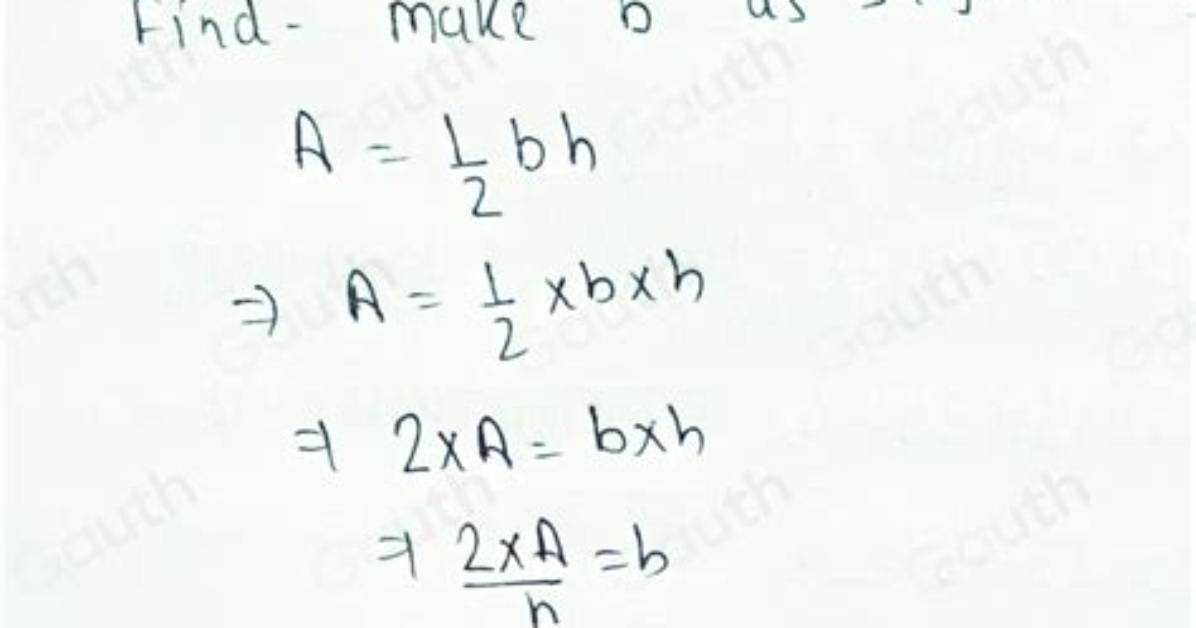 Find - make b as
A = 1/2 b h
⇒ A = 1/2 × b × h
⇒ 2 × A = b × h
⇒ 2 × A / h = b